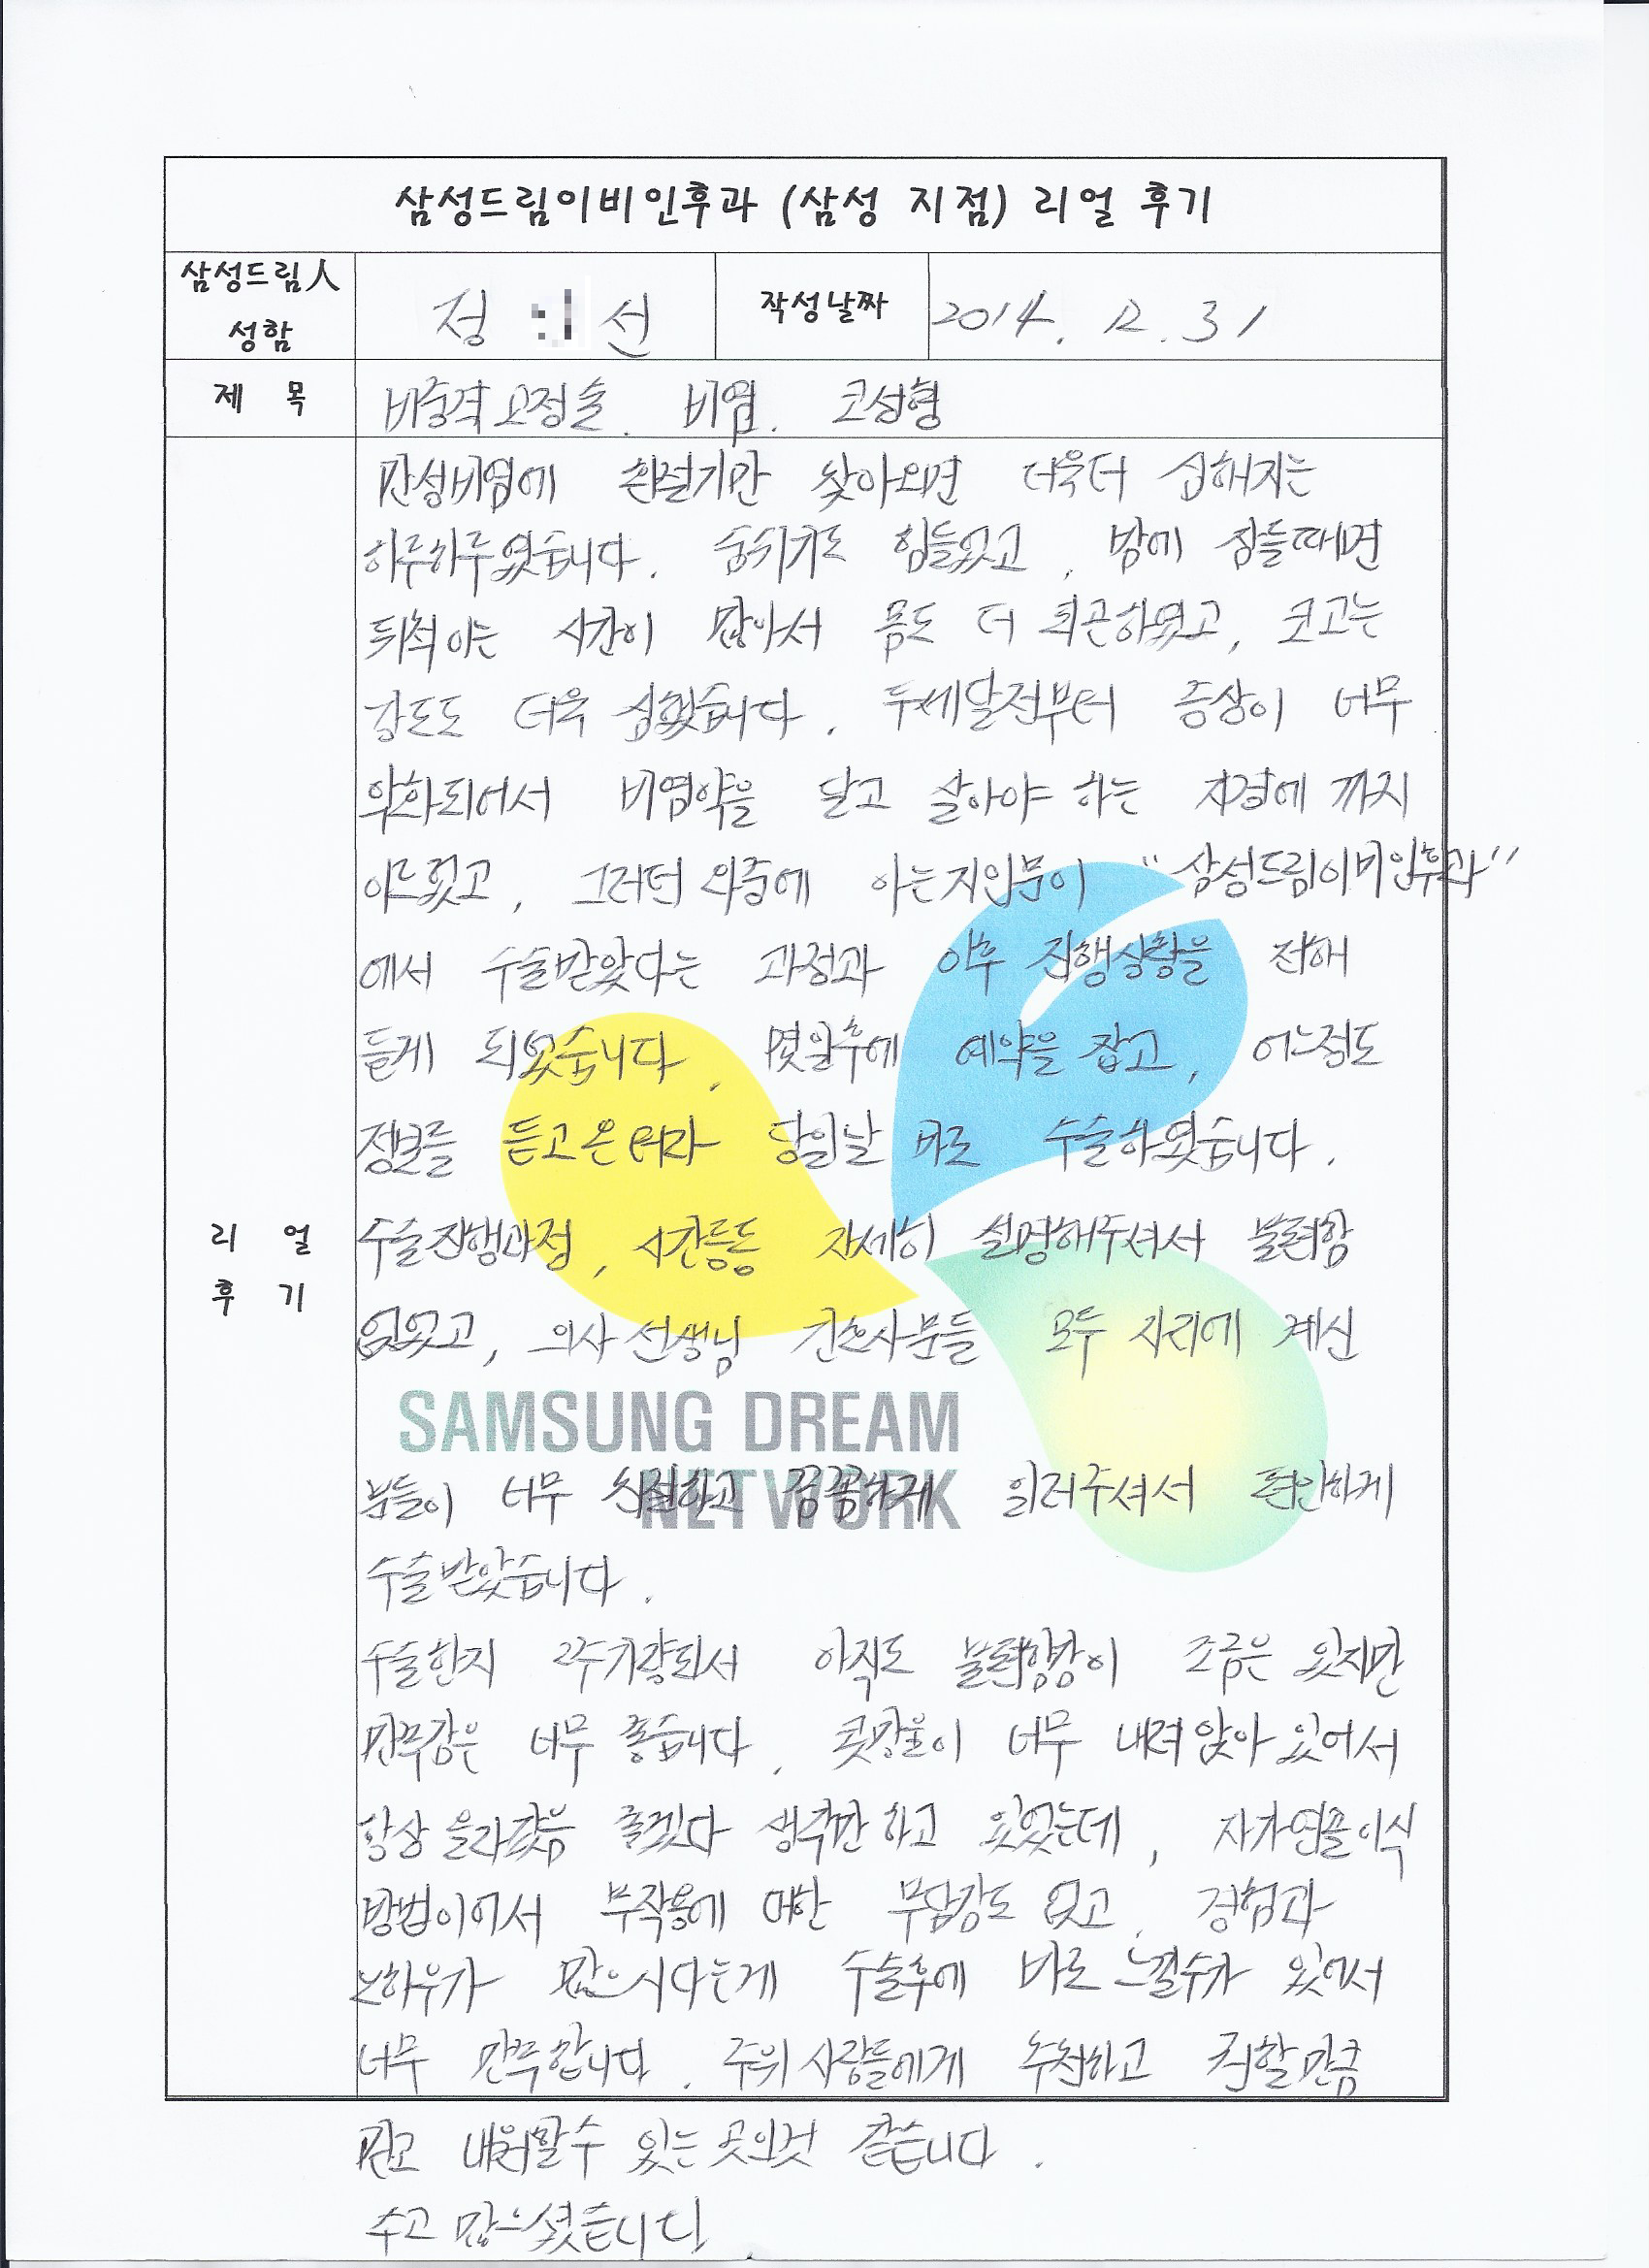 삼성드림이비인후과 (삼성 지점) 리얼 후기
삼성드림人
성함
정 선
작성날짜
2014. 12. 31
제 목
비중격고정술. 비염. 코성형
만성비염에 환절기만 찾아오면 더욱더 심해지는
하루하루였습니다. 숨쉬기도 힘들었고, 밤에 잠들때면
뒤척이는 시간이 많아서 몸도 더 피곤하였고, 코고는
강도도 더욱 심했습니다. 두세달전부터 증상이 너무
악화되어서 비염약을 달고 살아야 하는 지경에 까지
이르렀고, 그러던 와중에 아는지인분이 "삼성드림이비인후과"
에서 수술받았다는 과정과 이후 진행상황을 전해
듣게 되었습니다. 몇일후에 예약을 잡고, 어느정도
정보를 듣고온터라 당일날 바로 수술하였습니다.
리 얼
후 기
수술진행과정, 시간등등 자세히 설명해주셔서 불편함
없었고, 의사선생님 간호사분들 모두 자리에 계신
SAMSUNG DREAM
NETWORK
분들이 너무 친절하고 꼼꼼하게 일러주셔서 편안하게
수술받았습니다.
수술한지 2주가량되서 아직도 불편함감이 조금은 있지만
만족감은 너무 좋습니다. 콧망울이 너무 내려앉아 있어서
항상 올라갔음 좋겠다 생각만 하고 있었는데, 자가연골이식
방법이어서 부작용에 대한 부담감도 없고, 경험과
노하우가 많으시다는게 수술후에 바로 느낄수가 있어서
너무 만족합니다. 주위 사람들에게 추천하고 권할만큼
믿고 내원할수 있는 곳인것 같습니다.
수고 많으셨습니다